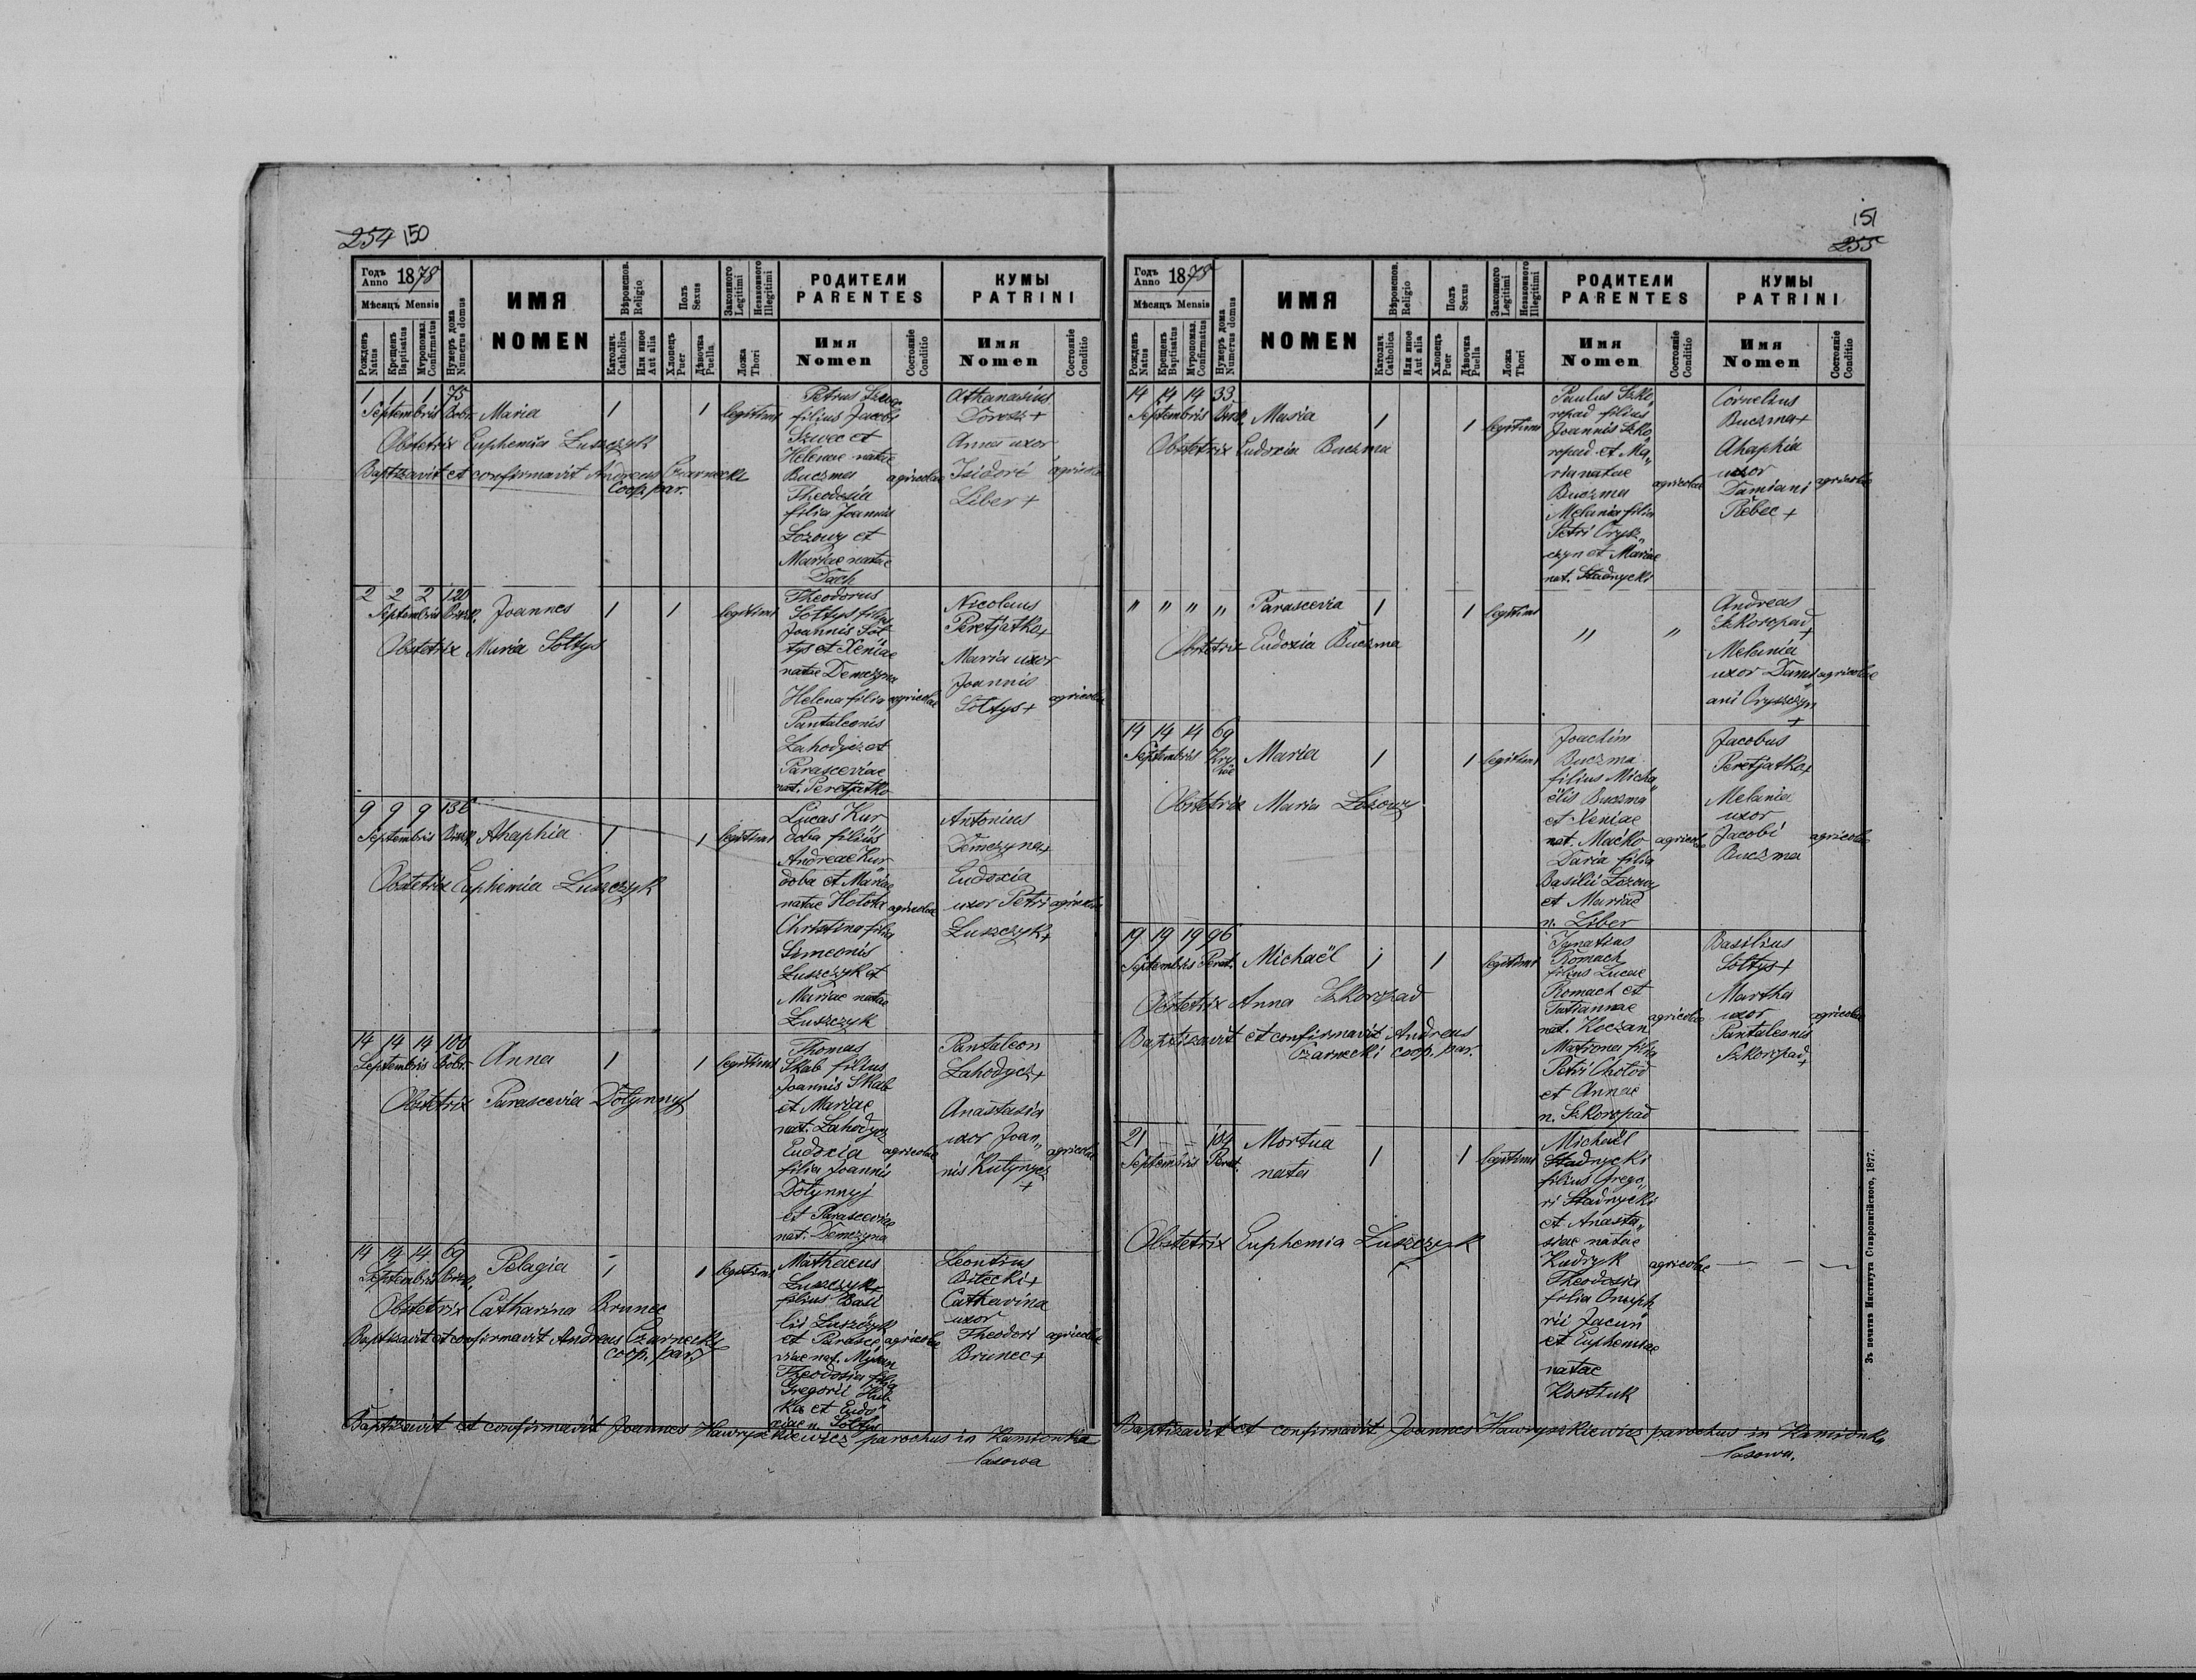 254 150
Годъ Anno 1878
Мѣсяцъ Mensis
Рожденъ Natus
Крещенъ Baptisatus
Мѵропомаз. Confirmatus
Нумеръ дома Numerus domus
ИМЯ
NOMEN
Вѣроиспов. Religio
Католич. Catholica
Или иное Aut alia
Полъ Sexus
Хлопецъ Puer
Дѣвочка Puella
Законного Legitimi
Незаконного Illegitimi
Ложа Thori
РОДИТЕЛИ
PARENTES
Имя
Nomen
Состояніе Conditio
КУМЫ
PATRINI
Имя
Nomen
Состояніе Conditio
1 1 1 75
Septembris Bobr. Maria 1 1 legitimi
Obstetrix Euphemia Łuszczyk
Baptisavit et confirmavit Andreas Czarnecki
Coop. par.
Petrus Szwec
filius Jacobi
Szwec et
Helenae natae
Buczma agricolae
Theodosia
filia Joannis
Łozowy et
Mariae natae
Dach
Athanasius
Dorosz +
Anna uxor
Isidori agricolae
Liber +
2 2 2 120
Septembris Joannes 1 1 legitimi
Obstetrix Maria Sołtys
Theodorus
Sołtys filius
Joannis Soł
tys et Xeniae
natae Demczyna
Helena filia agricolae
Pantaleonis
Lahodycz et
Parasceviae
nat. Peretjatko
Nicolaus
Peretjatko +
Maria uxor
Joannis
Sołtys + agricolae
9 9 9 136
Septembris Ahaphia 1 1 legitimi
Obstetrix Euphemia Łuszczyk
Lucas Kur
doba filius
Andreae Kur
doba et Mariae
natae Hołota agricolae
Christina filia
Simeonis
Łuszczyk et
Mariae natae
Łuszczyk
Antonius
Demczyna +
Eudoxia
uxor Petri agricolae
Łuszczyk +
14 14 14 104
Septembris Bobr. Anna 1 1 legitimi
Obstetrix Parascevia Dołynnyj
Thomas
Skab filius
Joannis Skab
et Mariae
nat. Lahodycz
Eudoxia agricolae
filia Joannis
Dołynnyj
et Parasceviae
nat. Demczyna
Pantaleon
Lahodycz +
Anastasia
uxor Joan„
nis Kutynycz agricolae
+
14 14 14 69
Septembris Pelagia 1 1 legitimi
Obstetrix Catharina Brunec
Baptisavit et confirmavit Andreas Czarnecki
coop. par.
Mathaeus
Łuszczyk
filius Basi
lii Łuszczyk
et Parasce„ agricolae
viae nat.
Theodosia filia
Gregorii Hub
ka et Eudo„
xiae n. Sołtys
Leontius
Bilecki +
Catharina
uxor
Theodori agricolae
Brunec +
Baptisavit et confirmavit Joannes Hawryszkiewicz parochus in Kamionka
lasowa
151
255
Годъ Anno 1878
Мѣсяцъ Mensis
Рожденъ Natus
Крещенъ Baptisatus
Мѵропомаз. Confirmatus
Нумеръ дома Numerus domus
ИМЯ
NOMEN
Вѣроиспов. Religio
Католич. Catholica
Или иное Aut alia
Полъ Sexus
Хлопецъ Puer
Дѣвочка Puella
Законного Legitimi
Незаконного Illegitimi
Ложа Thori
РОДИТЕЛИ
PARENTES
Имя
Nomen
Состояніе Conditio
КУМЫ
PATRINI
Имя
Nomen
Состояніе Conditio
14 14 14 33
Septembris Maria 1 1 legitimi
Obstetrix Eudoxia Buczma
Paulus Szko„
ropad filius
Joannis Szko
ropad et Ma„
ria natae
Buczma agricolae
Melania filia
Petri Orysz„
czyn et Mariae
nat. Stadnycki
Cornelius
Buczma +
Ahaphia
uxor
Damiani agricolae
Rebec +
„ „ „ „ Parascevia 1 1 legitimi
Obstetrix Eudoxia Buczma
„ „
Andreas
Szkoropad
+
Melania
uxor Dami agricolae
ani Oryszczyn
+
14 14 14 69
Septembris Maria 1 1 legitimi
Obstetrix Maria Łozowy
Joachim
Buczma
filius Micha„
ëlis Buczma
et Xeniae
nat. Maćko agricolae
Daria filia
Basilii Łozowy
et Mariae
n. Liber
Jacobus
Peretjatko +
Melania
uxor
Jacobi agricolae
Buczma
19 19 19 96
Septembris Peret. Michaël 1 1 legitimi
Obstetrix Anna Szkoropad
Baptisavit et confirmavit Andreas
Czarnecki coop. par.
Ignatius
Romach
filius Lucae
Romach et
Tatiannae
nat. Koczan agricolae
Matrona filia
Petri Chołod
et Annae
n. Szkoropad
Basilius
Sołtys +
Martha
uxor agricolae
Pantaleonis
Szkoropad
+
21 — — 184 Mortua
Septembris Peret. nata 1 1 legitimi
Obstetrix Euphemia Łuszczyk
Michaël
Stadnycki
filius Grego„
ri Stadnycki
et Anasta„
siae natae
Kudryk agricolae — — —
Theodosia
filia Onuph
rii Jacun
et Euphemiae
natae
Kostiuk
Baptisavit et confirmavit Joannes Hawryszkiewicz parochus in Kamionka
lasowa.
Зъ печатнѣ Института Ставропигійского, 1877.